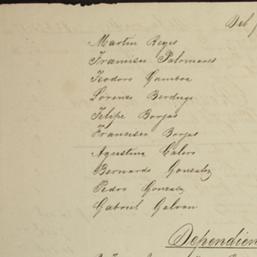 Del
Martin Reyes
Francisco Palomares
Teodoro Gamboa
Lorenzo Berdugo
Felipe Borjas
Francisco Borjas
Agustina Calero
Bernardo Gonzalez
Pedro Gonzalez
Gabriel Galvan
Dependien